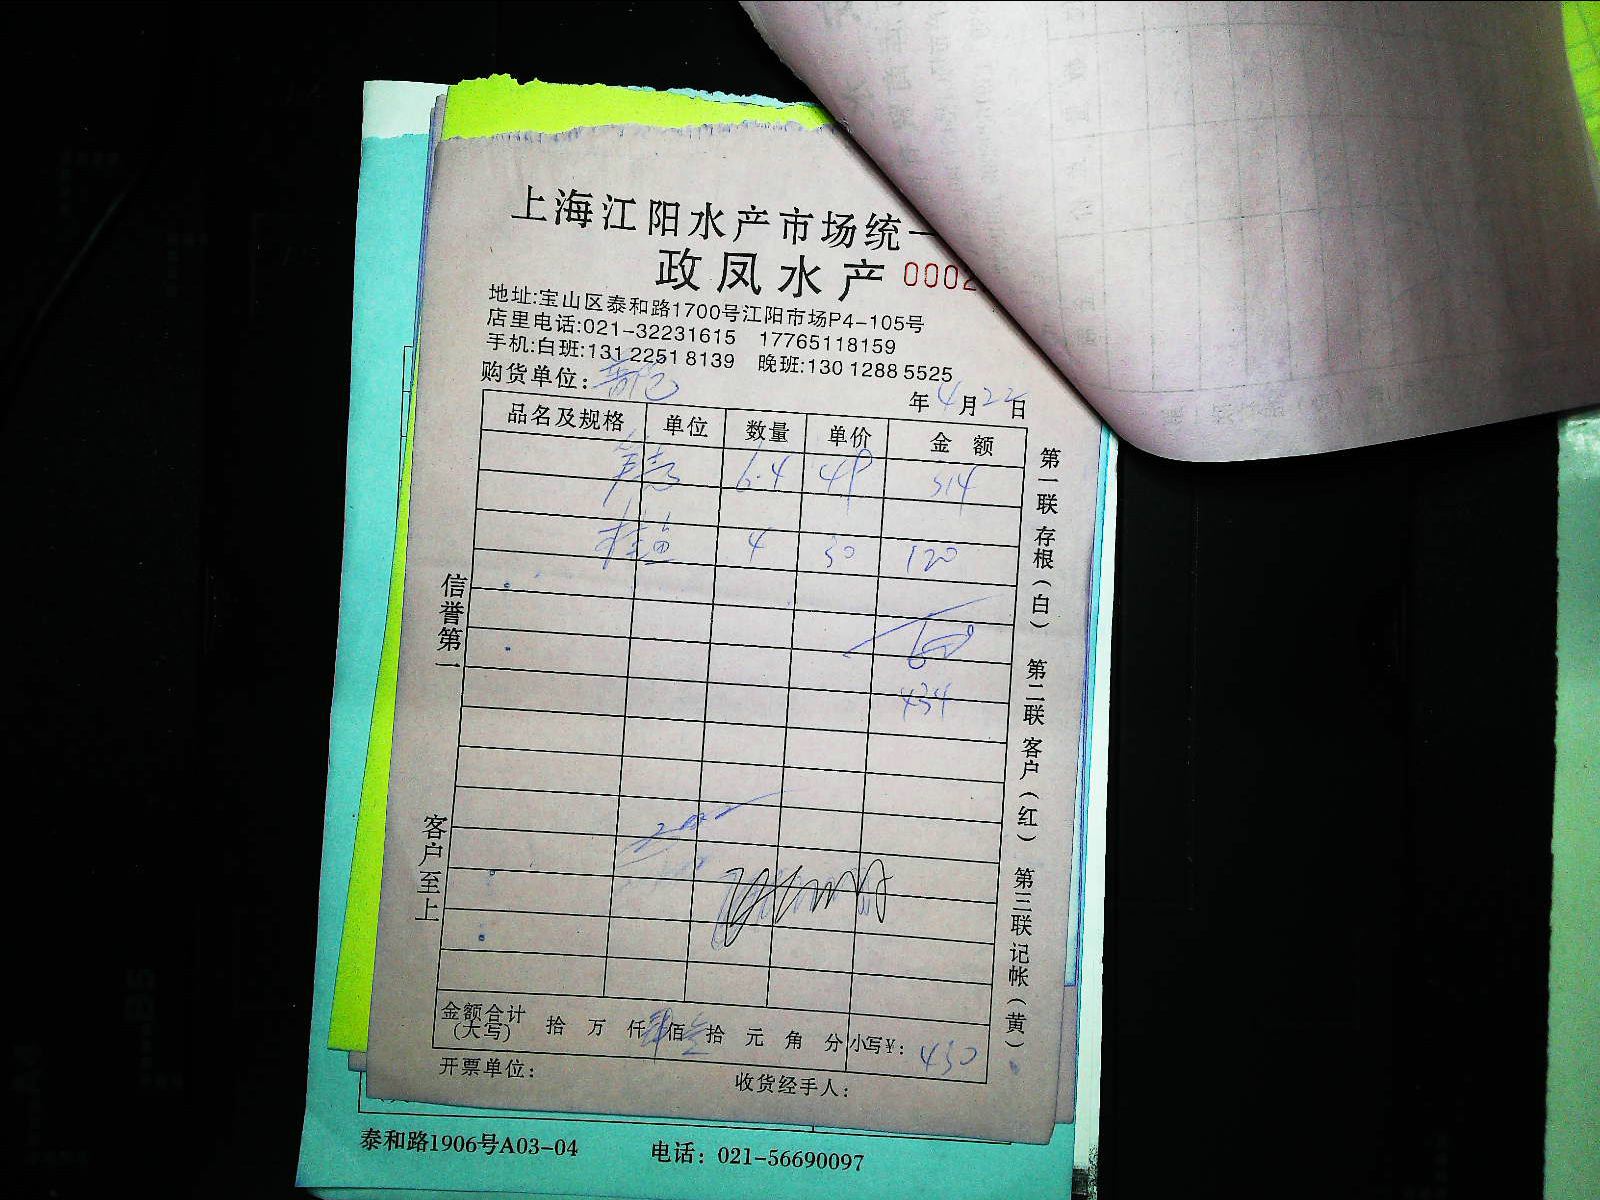 上海江阳水产市场统一
政凤水产 0002
地址:宝山区泰和路1700号江阳市场P4-105号
店里电话:021-32231615 17765118159
手机:白班:131 2251 8139 晚班:130 1288 5525
购货单位:
年4月22日
品名及规格 单位 数量 单价 金额
6.4 49 314
桂鱼 4 30 120
434
金额合计(大写) 拾 万 仟肆佰叁拾 元 角 分 小写¥: 430
开票单位: 收货经手人:
信誉第一
客户至上
第一联 存根(白)
第二联 客户(红)
第三联 记帐(黄)
泰和路1906号A03-04 电话: 021-56690097